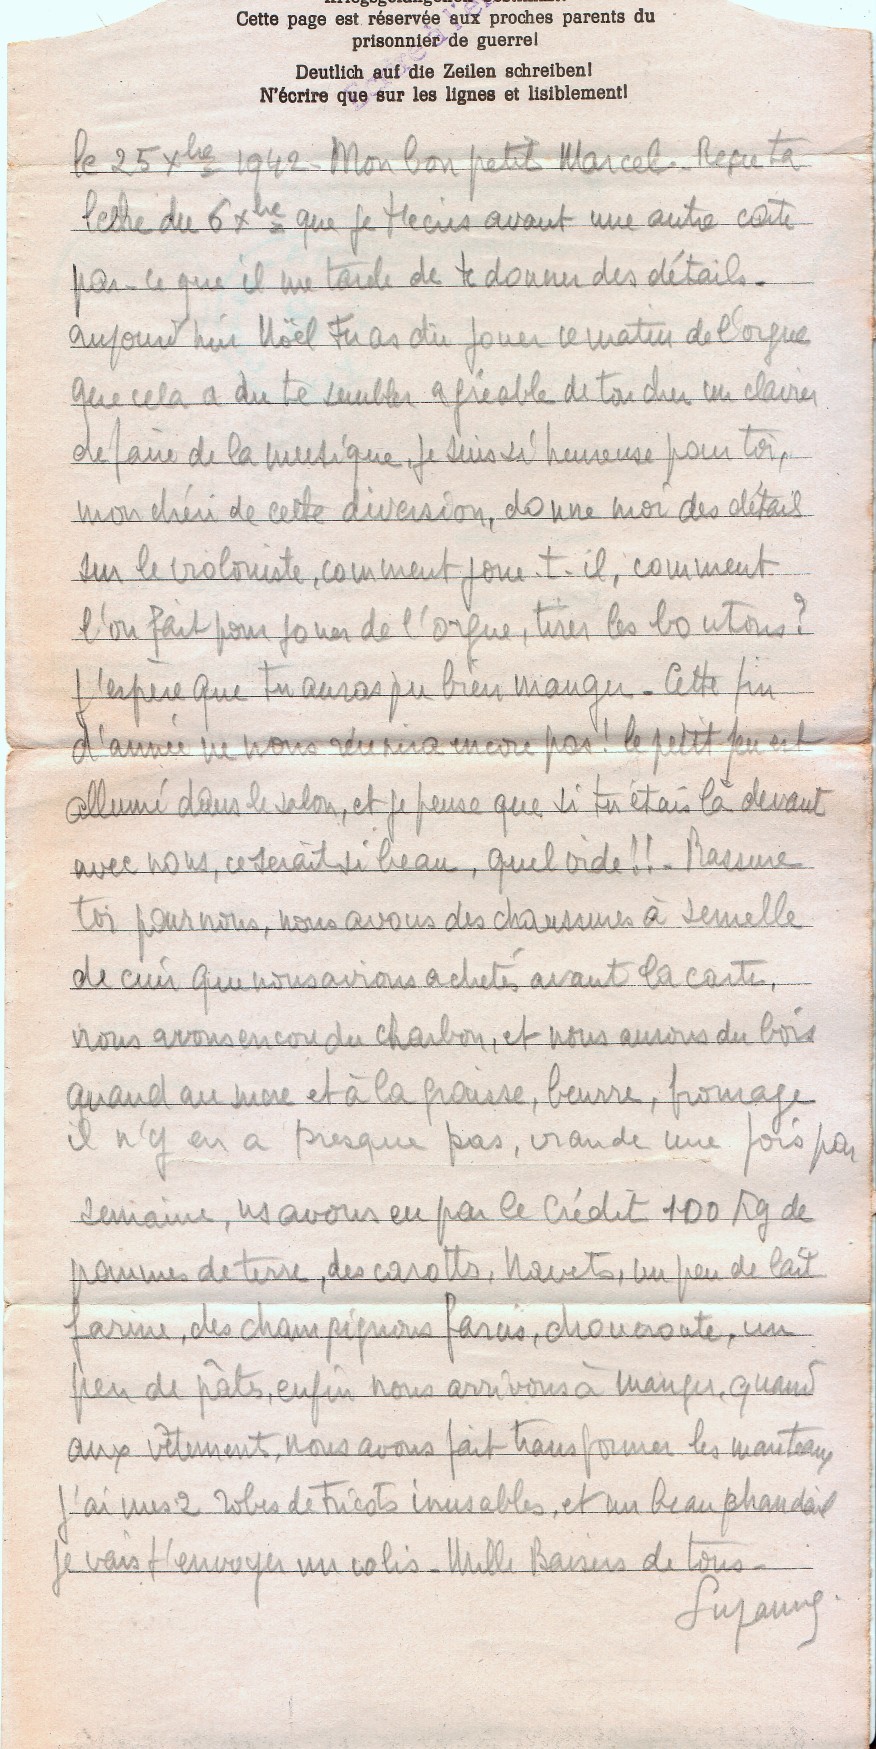 Cette page est réservée aux proches parents du
prisonnier de guerre!
Deutlich auf die Zeilen schreiben!
N'écrire que sur les lignes et lisiblement!
le 25 xbre 1942 - Mon bon petit Marcel - Reçu ta
lettre du 6 xbre que je t'écris avant une autre carte
par-ce que il me tarde de te donner des détails -
aujourd'hui Noël Tu as dû jouer ce matin de l'orgue
que cela a du te sembler agréable de toucher un clavier
de faire de la musique, je suis si heureuse pour toi,
mon chéri de cette diversion, donne moi des détails
sur le violoniste, comment joue-t-il, comment
l'on fait pour jouer de l'orgue, tirer les boutons?
J'espère que tu auras pu bien manger - Cette fin
d'année ne nous réunira encore pas! le petit feu est
allumé dans le salon, et je pense que si tu étais là devant
avec nous, ce serait si beau, quel vide!! - Rassure
toi pour nous, nous avons des chaussures à semelle
de cuir que nous avions achetés avant la carte,
nous avons encore du charbon, et nous aurons du bois
quand au et à la graisse, beurre, fromage
il n'y en a presque pas, viande une fois par
semaine, ns avons eu par le Crédit 100 Kg de
pommes de terre, des carotts, Navets, un peu de lait
farine, des champignons farcis, choucroute, un
peu de pâtes, enfin nous arrivons à manger, quand
aux vêtement, nous avons fait transformer les manteaux
j'ai mes 2 robes de tricots inusables, et un beau phandail
je vais t'envoyer un colis - Mille Baisers de tous -
Suzanne